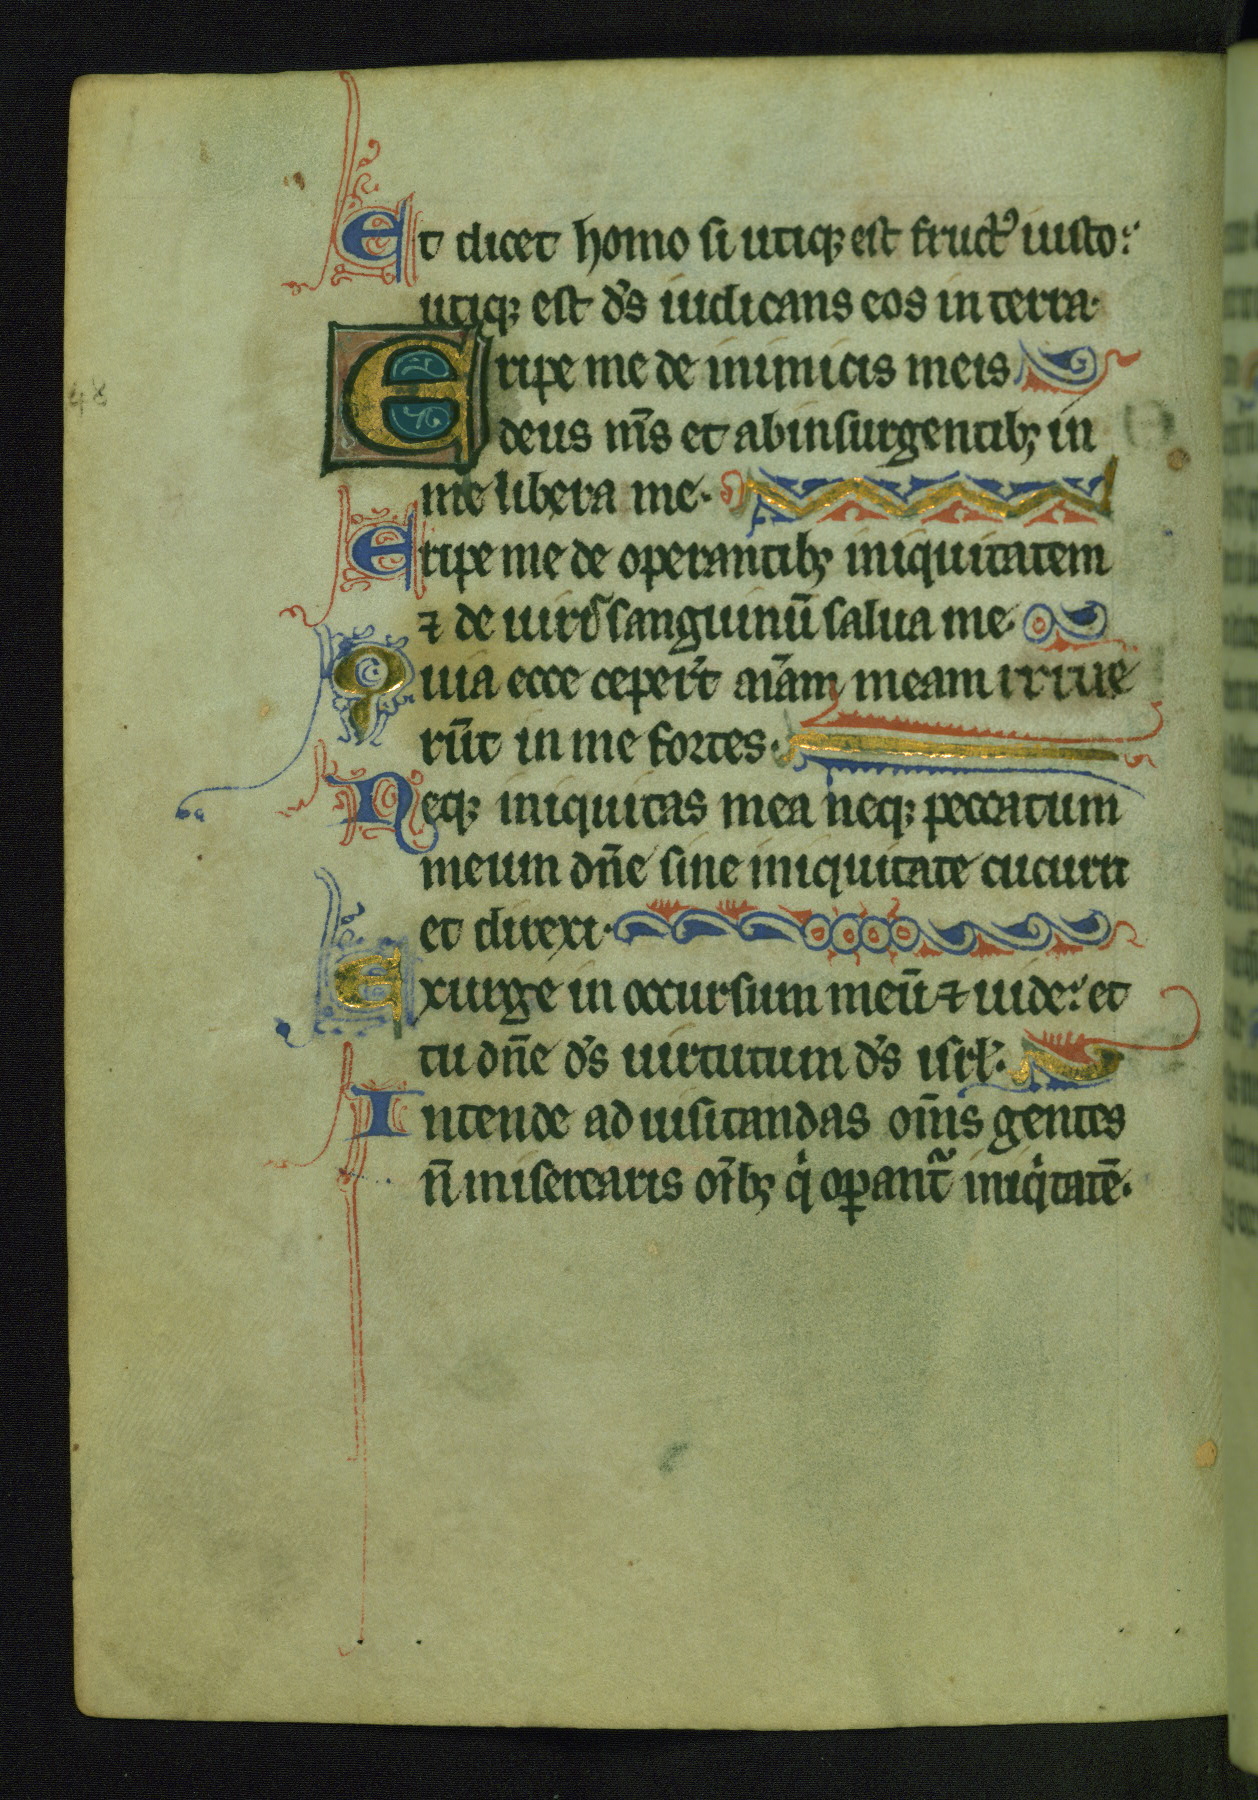 Et dicet homo si utiqꝫ est fruct᷒ iusto:
utiqꝫ est d̄s iudicans eos in terra·
Eripe me de inimicis meis
deus m̄s et ab insurgentibꝫ in
me libera me·
Eripe me de operantibꝫ iniquitatem
⁊ de uiris sanguinū salua me·
Quia ecce ceper̄t aīam meam irrue
rūt in me fortes·
Neqꝫ iniquitas mea neqꝫ peccatum
meum dn̄e sine iniquitate cucurri
et direxi·
Exurge in occursum meū ⁊ uide: et
tu dn̄e d̄s uirtutum d̄s isrl̓·
Intende ad uisitandas om̄s gentes
n̄ miserearis oībꝫ qͥ oꝑant᷑ iniqͥtatē·
48